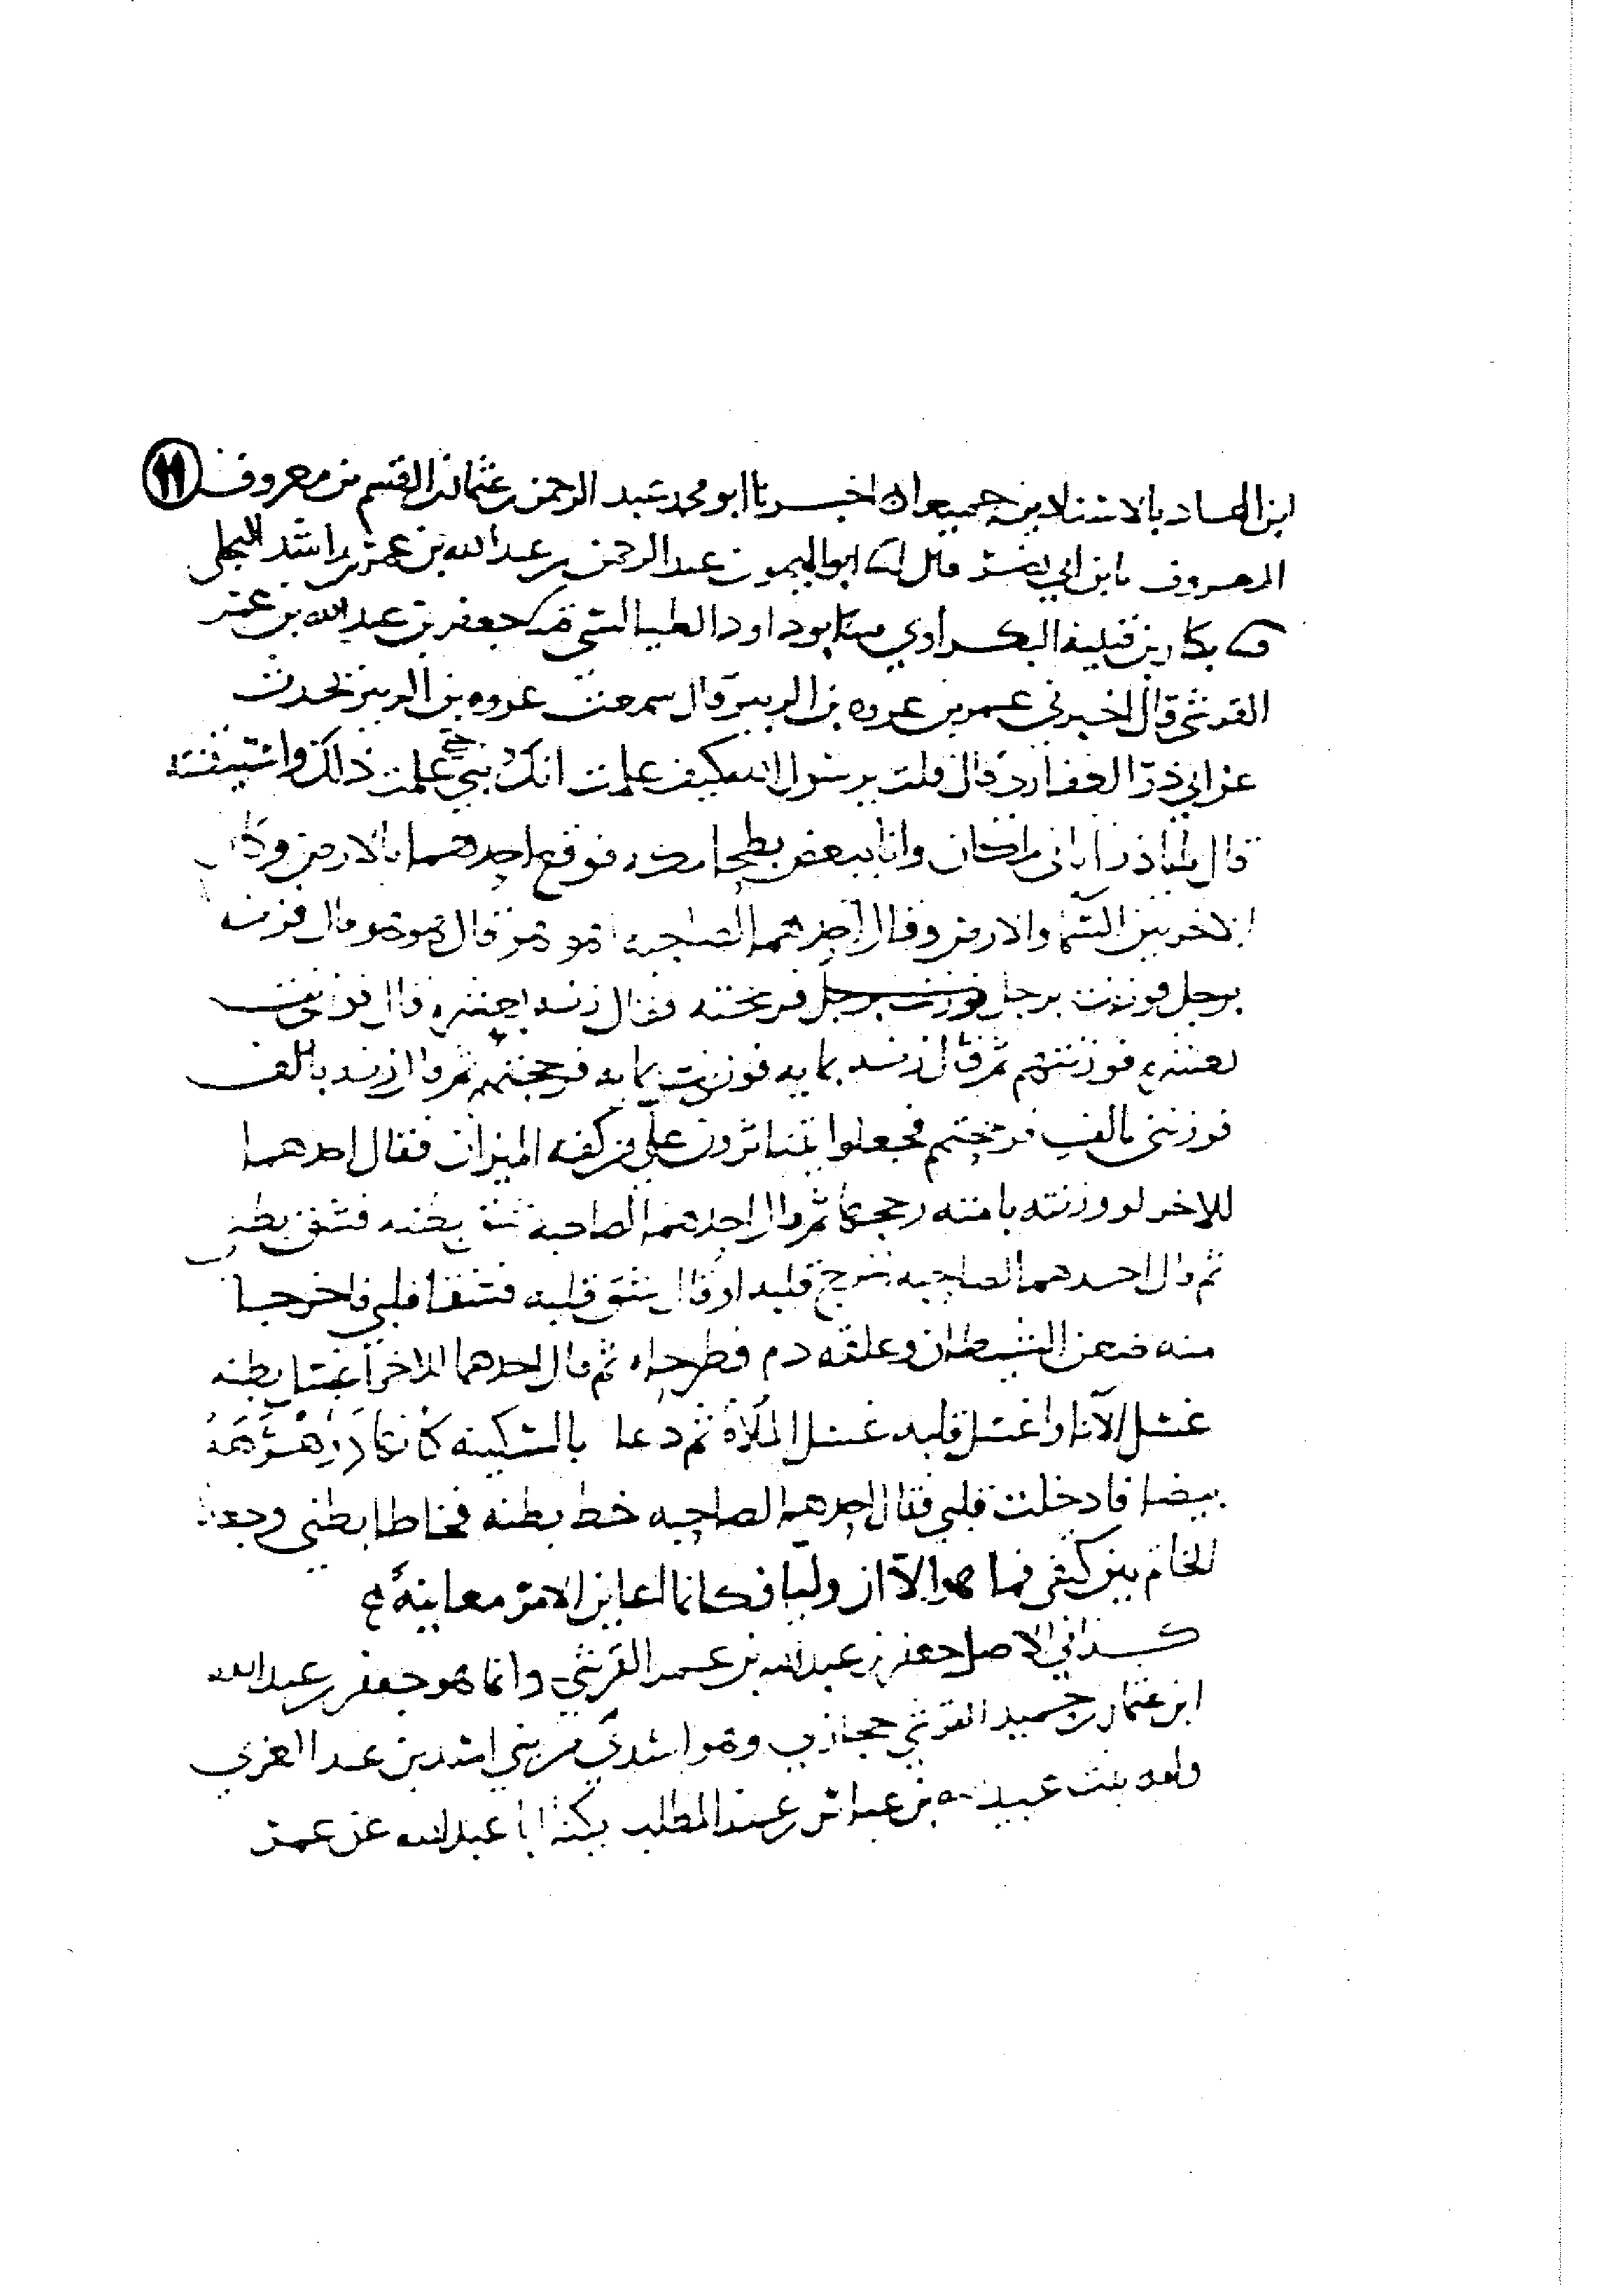 ١١
ابن الحداد بالاسناد بن جميعا انا اخبرنا ابو محمد عبد الرحمن بن عثمان بن القسم بن معروف
المعروف بابن ابي نصر قال انا ابو الميمون عبد الرحمن بن عبد الله بن عمر بن راشد البجلي
نا بكار بن قتيبة البكراوي نا ابو داود الطيالسي نا جعفر بن عبد الله بن عمر
القرشي قال اخبرني عمر بن عروه بن الزبير قال سمعت عروه بن الزبير يحدث
عن ابي ذر الغفاري قال قلت يرسول الله كيف علمت انك نبي حتى علمت ذلك واستيقنته
قال يابا ذر اتاني ملكان وانا ببعض بطحا مكه فوقع احدهما بالارض وكان
الاخر بين السما والارض وقال احدهما لصاحبه اهو هو قال هو هو قال فزنه
برجل فوزنت برجل فرجحته فقال زنه بعشرة قال فوزنني
بعشره فوزنتهم ثم قال زنه بمايه فوزنت بمايه فرجحتهم ثم قال زنه بالف
فوزنني بالف فرجحتهم فجعلوا يتناثرون علي من كفه الميزان فقال احدهما
للاخر لو وزنته بامته رجحها ثم قال احدهما لصاحبه شق بطنه فشق بطني
ثم قال احدهما لصاحبه شرح قلبه او قال شق قلبه فشقا قلبي فاخرجا
منه مغمز الشيطان وعلقه دم فطرحاه ثم قال احدهما للاخر اغسل بطنه
غسل الانا واغسل قلبه غسل الملاة ثم دعا بالسكينه كانها رهرهه
بيضا فادخلت قلبي فقال احدهما لصاحبه خط بطنه فخاطا بطني وجعلا
الخاتم بين كتفي فما هو الا ان وليا فكانما اعاين الامر معاينة
كذا في الاصل جعفر بن عبد الله بن عمر القرشي وانما هو جعفر بن عبد الله
ابن عثمان بن حميد القرشي حجازي وهو اسدي من بني اسد بن عبد العزى
وامه بنت عبيد الله بن عباس بن عبد المطلب يكنا ابا عبد الله عن عمر